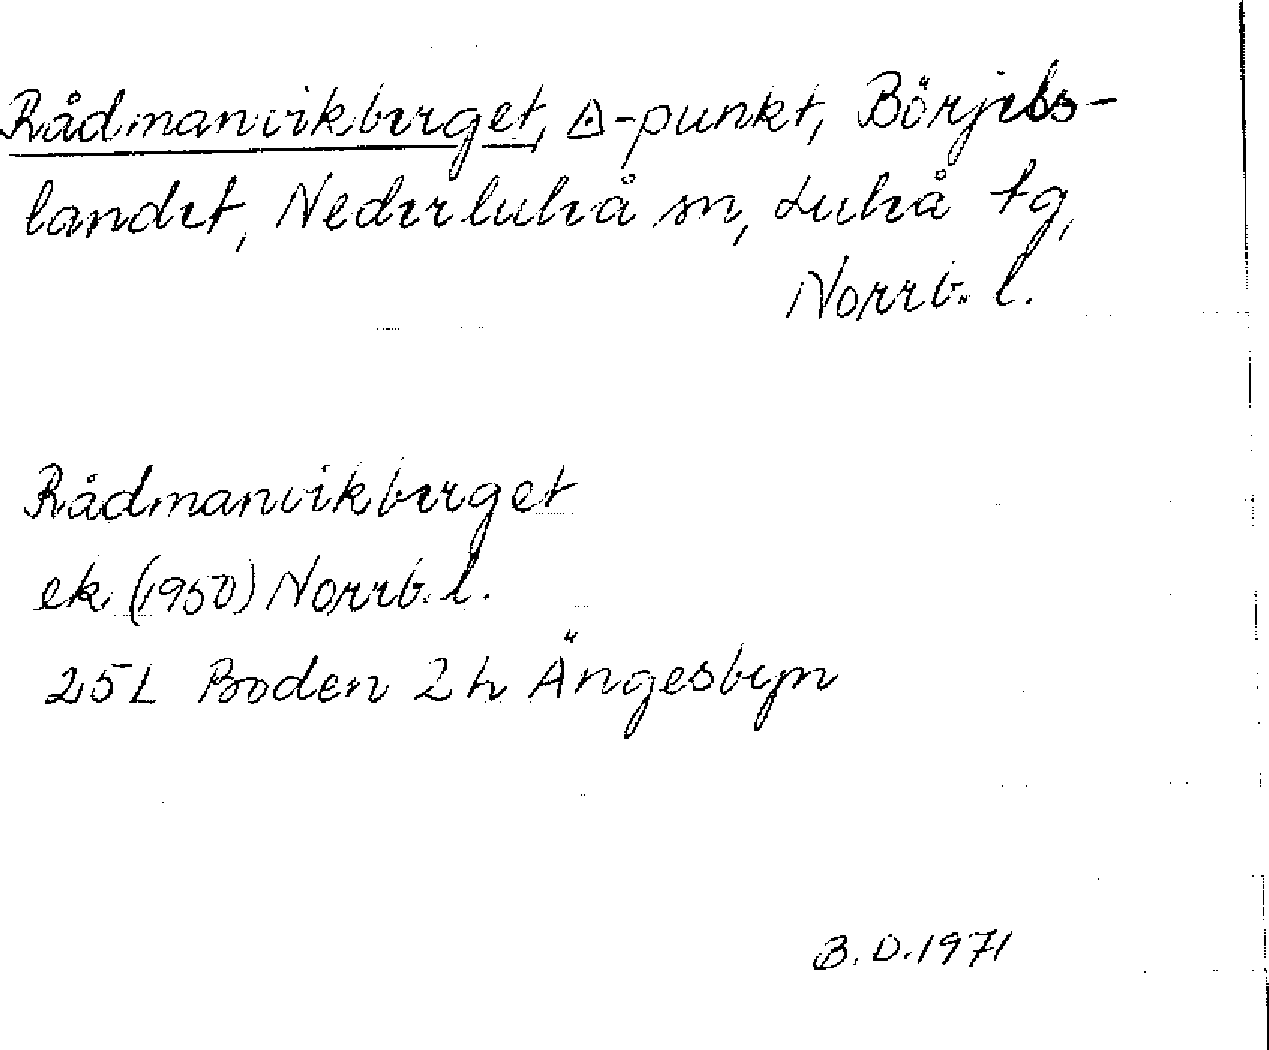 Rådmanvikberget, △-punkt, Börjels-
landet, Nederluleå sn, Luleå tg,
Norrb. l.
Rådmanvikberget
ek (1950) Norrb. l.
25L Boden 2h Ängesbyn
B.D. 1971